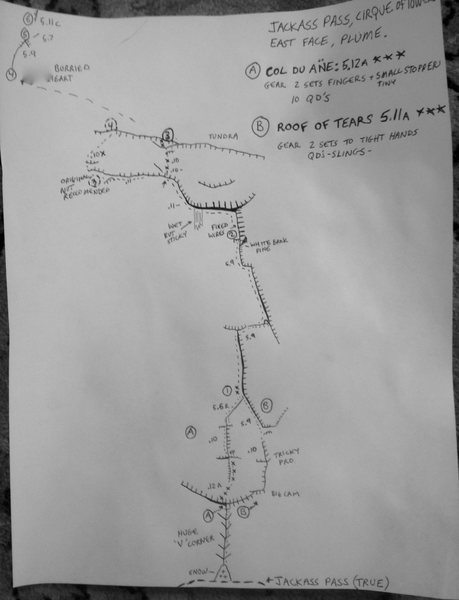 JACKASS PASS, CIRQUE OF TOWE
EAST FACE, PLUME.
A COL DU AÑE: 5.12A ***
GEAR 2 SETS FINGERS + SMALL STOPPER
TINY
10 QD'S
B ROOF OF TEARS 5.11A ***
GEAR 2 SETS TO TIGHT HANDS
QD'S - SLINGS -
6 5.11C
5 5.7
5.9
4 BURRIED
HEART
4
3
TUNDRA
.10X
.10
.10
ORIGINAL
NOT
RECOMENDED
3
.11
.11-
WET
BUT
STICKY
FIXED
WIRES
2
WHITE BARK
PINE
5.9
5.9
1
5.8R
B
5.9
A
.10
.10
TRICKY
PRO
.9
.12A
BIG CAM
A
B
HUGE
'V' CORNER
SNOW
JACKASS PASS (TRUE)